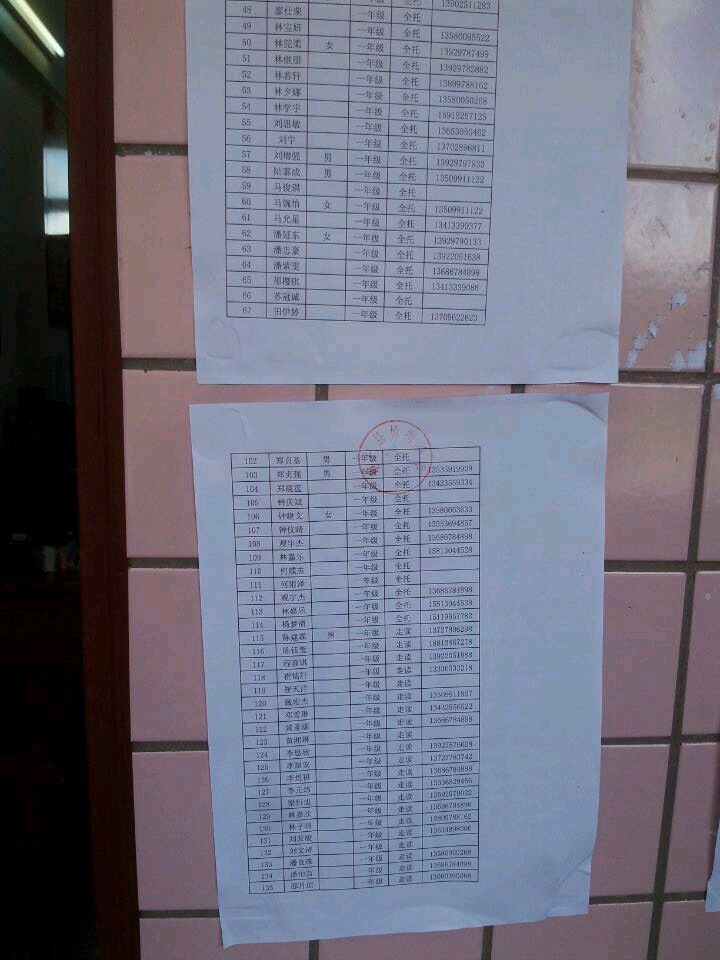 13902511293
48 廖仕荣 一年级 全托
49 林宝妍 一年级 全托 13580095522
50 林莞柔 女 一年级 全托 13929787499
51 林继朋 一年级 全托 13929782882
52 林若轩 一年级 全托 13809788162
53 林夕娜 一年级 全托 13580050268
54 林学宇 一年级 全托 15915257125
55 刘思敏 一年级 全托 13653050462
56 刘宇 一年级 全托 13702896811
57 刘增强 男 一年级 全托 13929797933
58 陆泰成 男 一年级 全托 13509911122
59 马俊琪 一年级 全托
60 马婉怡 女 一年级 全托 13509911122
61 马允星 一年级 全托 13413399377
62 潘延东 女 一年级 全托 13929790133
63 潘志豪 一年级 全托 13922051638
64 潘紫雯 一年级 全托 13686784898
65 邵樱琪 一年级 全托 13413339088
66 苏冠诚 一年级 全托
67 田伊婷 一年级 全托 13709622623
102 郑贞基 男 一年级 全托
103 郑贞强 男 一年级 全托 13535919938
104 郑晨霆 一年级 全托 13423559334
105 钟庆斌 一年级 全托
106 钟晓文 女 一年级 全托 13580053533
107 钟仪晴 一年级 全托 13553694857
108 观宇杰 一年级 全托 13686784898
109 林嘉乐 一年级 全托 15813044528
110 何威志 一年级 全托
111 何雨泽 一年级 全托
112 观宇杰 一年级 全托 13686784898
113 林嘉乐 一年级 全托 15813044528
114 杨梦婧 一年级 全托 15119657782
115 陈建霖 男 一年级 走读 13727806298
116 陈钰莹 一年级 走读 18813467278
117 程嘉琪 一年级 走读
118 一年级 走读 13336533218
119 一年级 走读
120 戴俊杰 一年级 走读 13509911997
121 邓雪琳 一年级 走读 13432956522
122 一年级 走读 13686784898
123 黄湘琳 一年级 走读
124 李思欣 一年级 走读
125 一年级 走读 13727783742
126 李煜祺 一年级 走读 13686784898
127 李元鸿 一年级 走读
128 一年级 走读
129 林嘉欣 一年级 走读 13686784898
130 林子明 一年级 走读 13809788162
131 刘发敏 一年级 走读
132 刘文涛 一年级 走读
133 潘良珠 一年级 走读 13580050268
134 潘怡茵 一年级 走读 13686784898
135 邵月琼 一年级 走读 13600390268